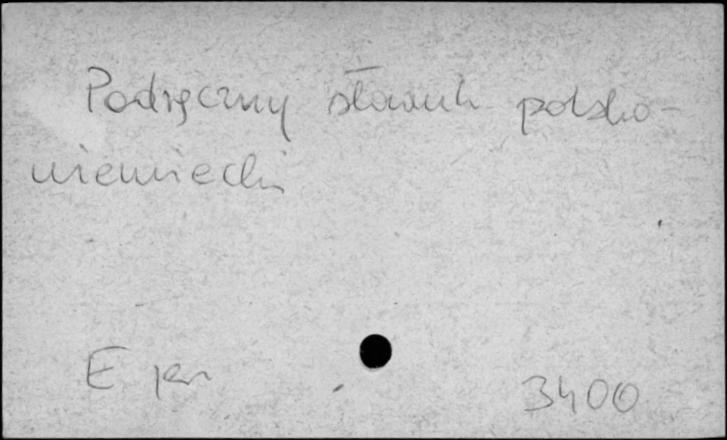 Podręczny słownik polsko-
niemiecki
E
3400